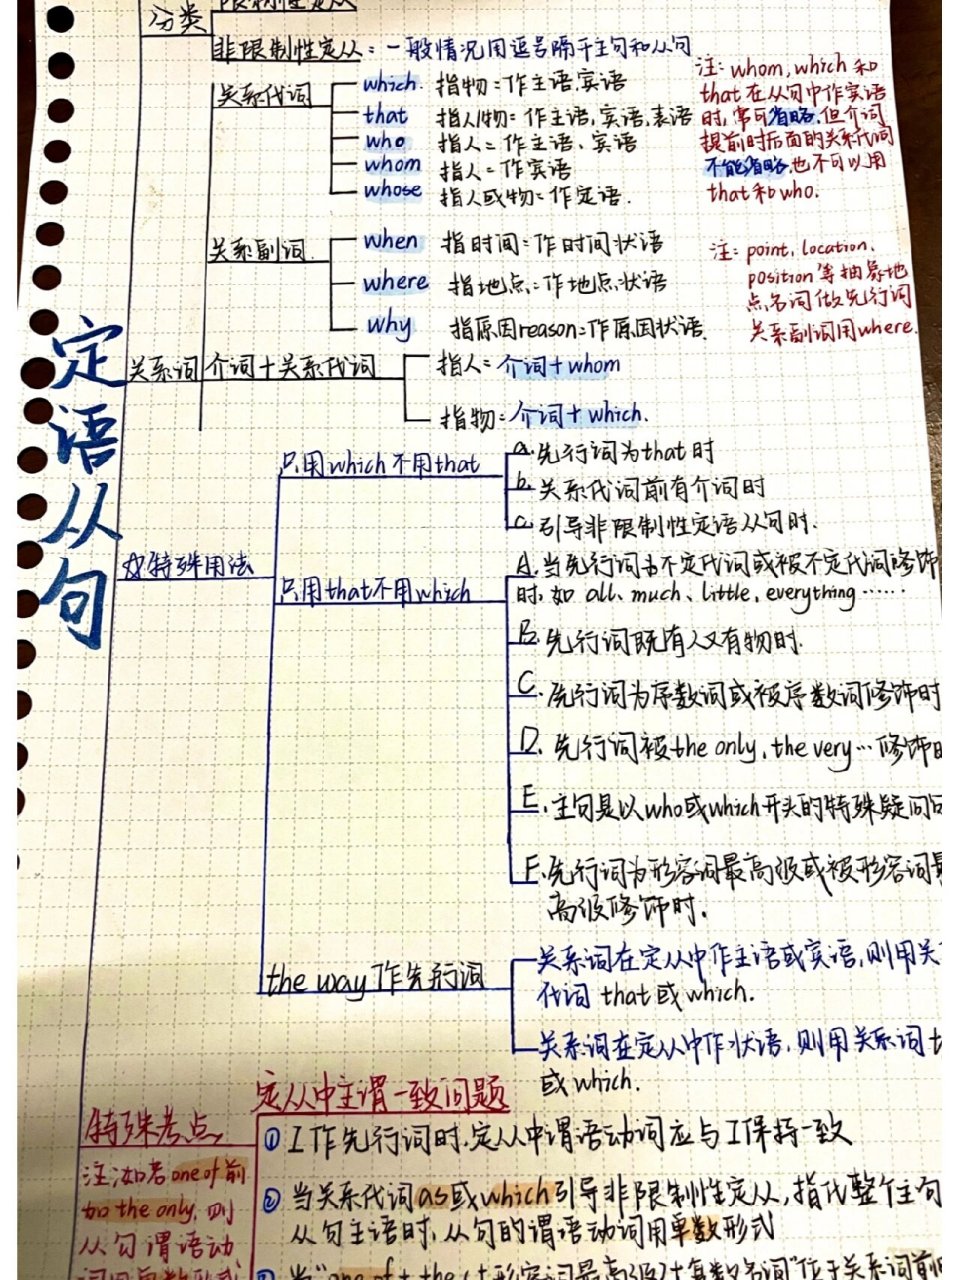 定语从句
分类
限制性定从
非限制性定从：一般情况用逗号隔开主句和从句
关系代词
which 指物：作主语、宾语
that 指人/物：作主语，宾语，表语
who 指人：作主语、宾语
whom 指人：作宾语
whose 指人或物：作定语.
注：whom, which 和
that 在从句中作宾语
时，常可省略，但介词
提前时后面的关系代词
不能省略，也不可以用
that 和 who.
关系副词
when 指时间：作时间状语
where 指地点：作地点状语
why 指原因reason：作原因状语.
注：point, location,
position 等抽象地
点名词做先行词
关系副词用where.
关系词
介词+关系代词
指人：介词+whom
指物：介词+which.
☆特殊用法
只用which不用that
a.先行词为that时
b.关系代词前有介词时
c.引导非限制性定语从句时.
只用that不用which
A.当先行词为不定代词或被不定代词修饰
时，如 all、much、little, everything……
B.先行词既有人又有物时.
C.先行词为序数词或被序数词修饰时
D.先行词被the only, the very…修饰时
E.主句是以who或which开头的特殊疑问句
F.先行词为形容词最高级或被形容词最
高级修饰时.
the way作先行词
关系词在定从中作主语或宾语，则用关
代词 that或which.
关系词在定从中作状语，则用关系词t
或which.
特殊考点
注：如若one of前
如the only, 则
从句谓语动
定从中主谓一致问题
① I作先行词时，定从中谓语动词应与I保持一致
② 当关系代词as或which引导非限制性定从，指代整个主句
从句主语时，从句的谓语动词用单数形式
当"one of + the (+形容词最高级)+复数名词"位于关系词前